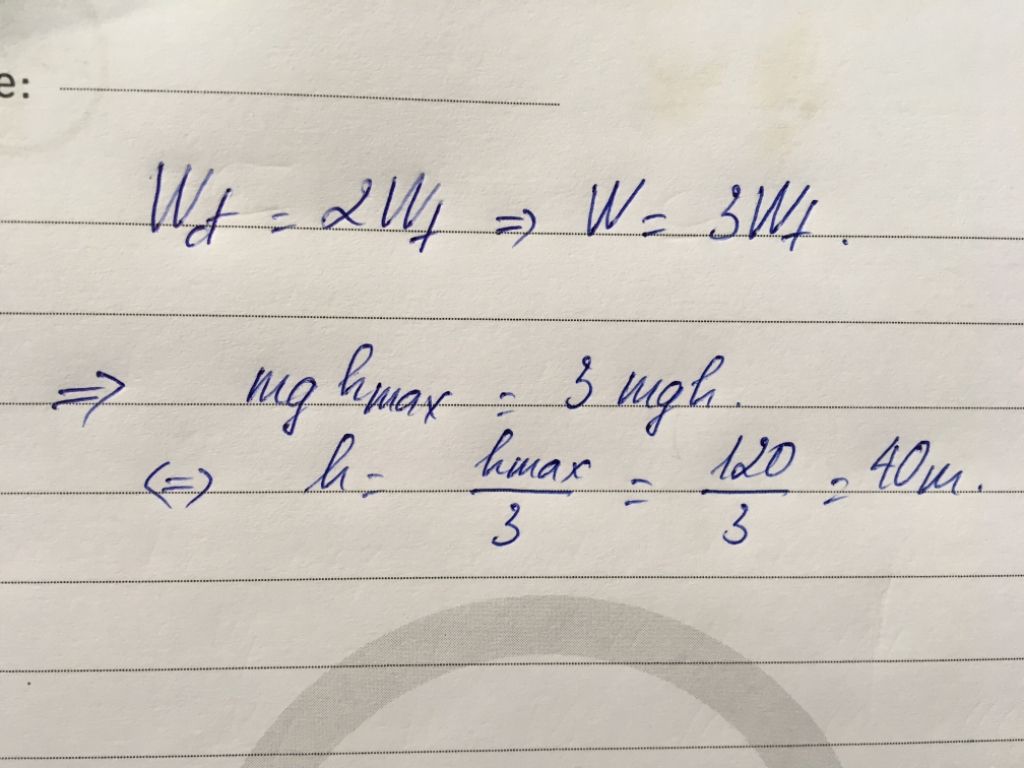 e:
Wđ = 2Wt => W = 3Wt.
=> mg hmax = 3 mgh.
<=> h = hmax/3 = 120/3 = 40m.